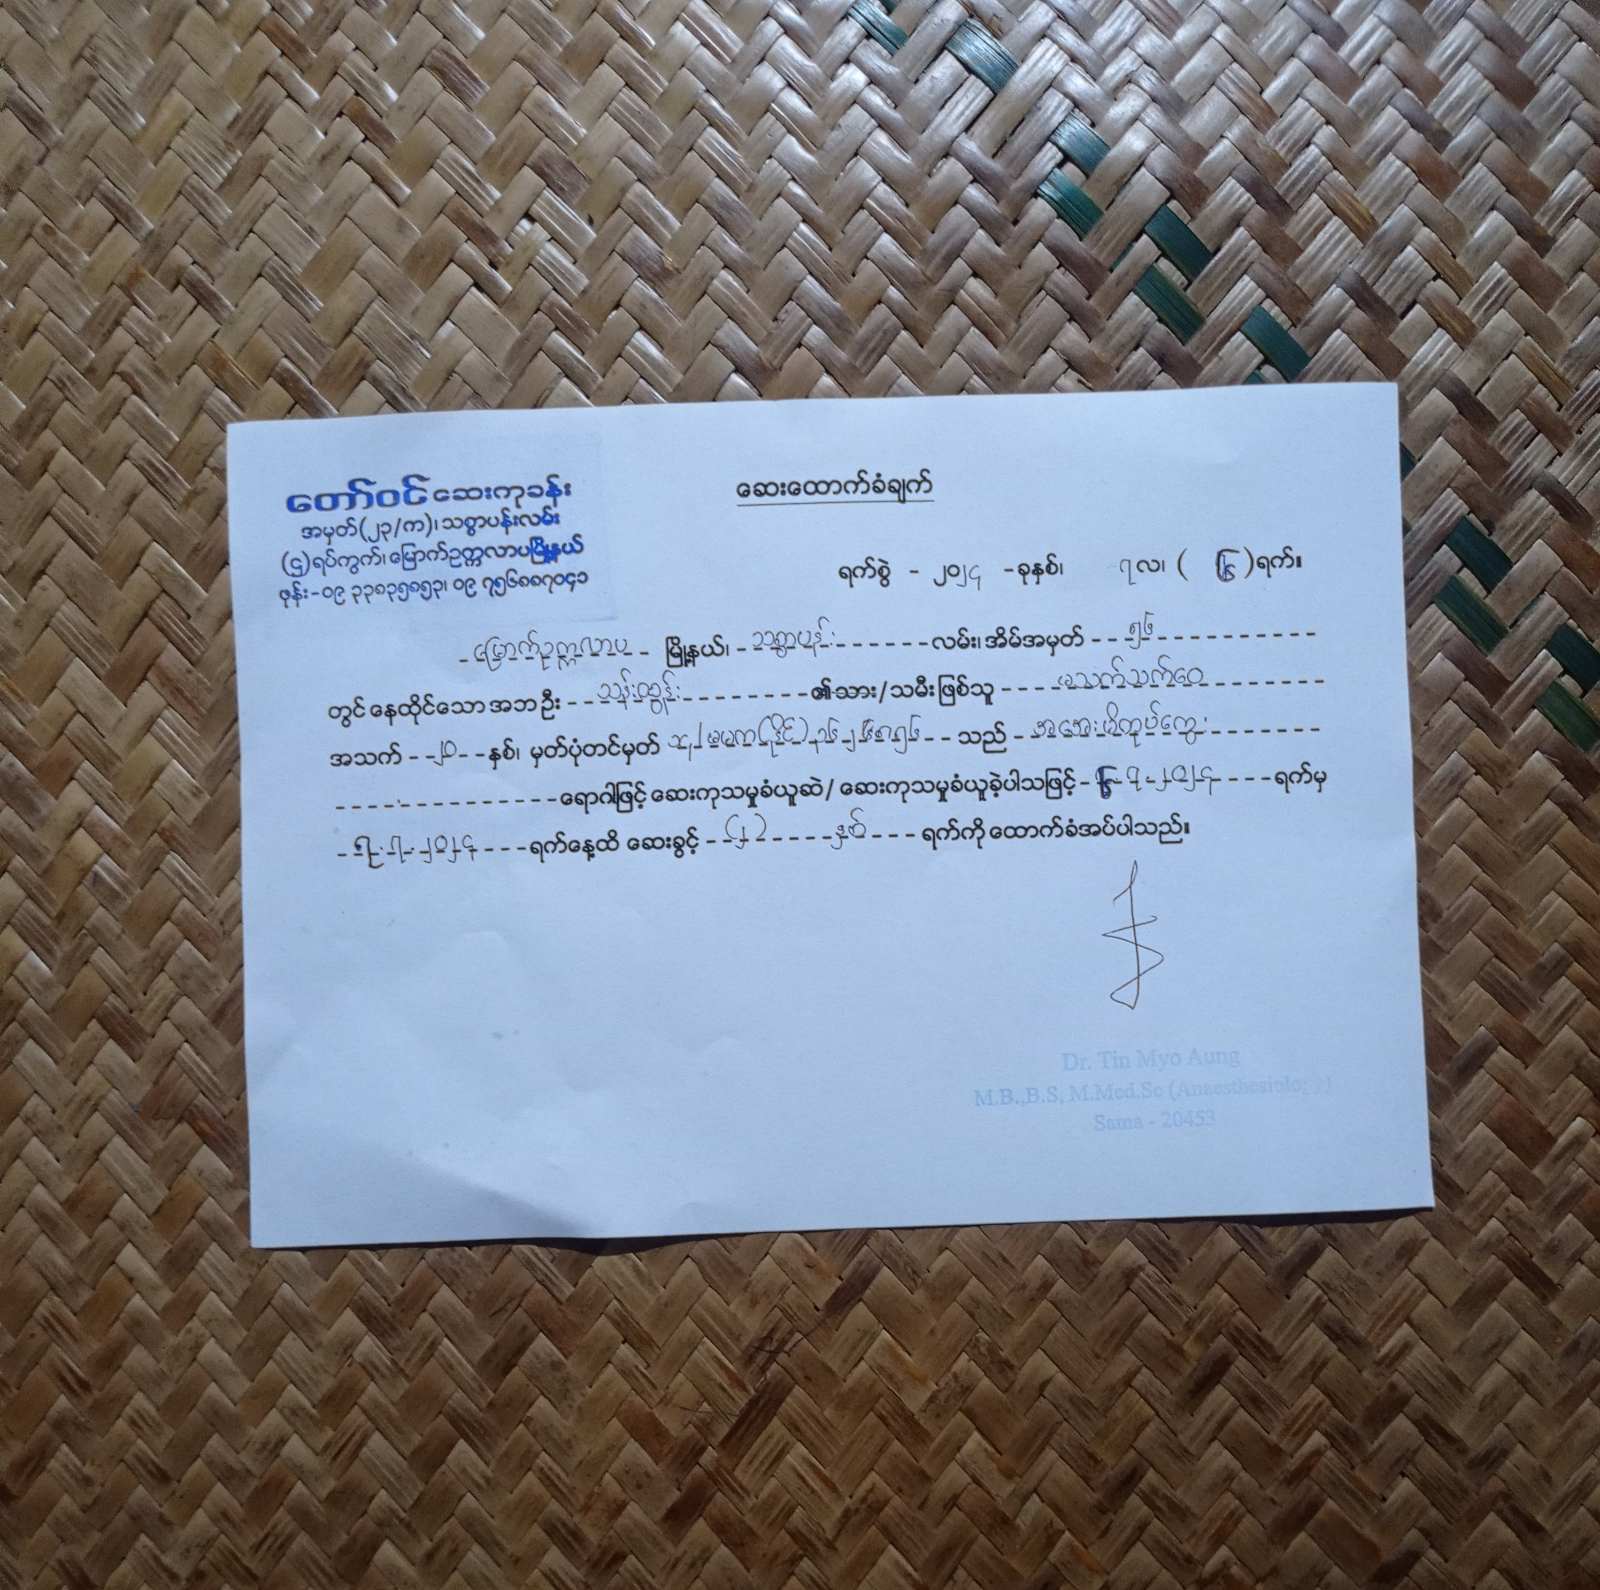 တော်ဝင် ဆေးကုခန်း
အမှတ်(၂၃/က)၊ သစ္စာပန်းလမ်း
(ဌ)ရပ်ကွက်၊ မြောက်ဥက္ကလာပမြို့နယ်
ဖုန်း-၀၉ ၃၃၈၃၅၈၅၃၊ ၀၉ ၇၅၆၈၈၇၀၄၁
ဆေးထောက်ခံချက်
ရက်စွဲ - ၂၀၂၄ -ခုနှစ်၊ ၇လ၊ ( )ရက်။
မြောက်ဥက္ကလာပ မြို့နယ်၊ သစ္စာပန်း လမ်း၊ အိမ်အမှတ် ၅၆
တွင်နေထိုင်သော အဘ ဦး သန်းထွန်း ၏သား/သမီးဖြစ်သူ မသက်သက်ဝေ
အသက် ၂၀ နှစ်၊ မှတ်ပုံတင်မှတ် သည် အအေးမိတုပ်ကွေး
ရောဂါဖြင့် ဆေးကုသမှုခံယူဆဲ/ ဆေးကုသမှုခံယူခဲ့ပါသဖြင့် ၇-၂၀၂၄ ရက်မှ
၇-၂၀၂၄ ရက်နေ့ထိ ဆေးခွင့် (၂) နှစ် ရက်ကို ထောက်ခံအပ်ပါသည်။
Dr. Tin Myo Aung
M.B.,B.S, M.Med.Sc (Anaesthesiology)
Sama - 20453